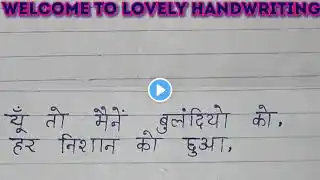 WELCOME TO LOVELY HANDWRITING
यूँ तो मैनें बुलंदियो को,
हर निशान को छुआ,